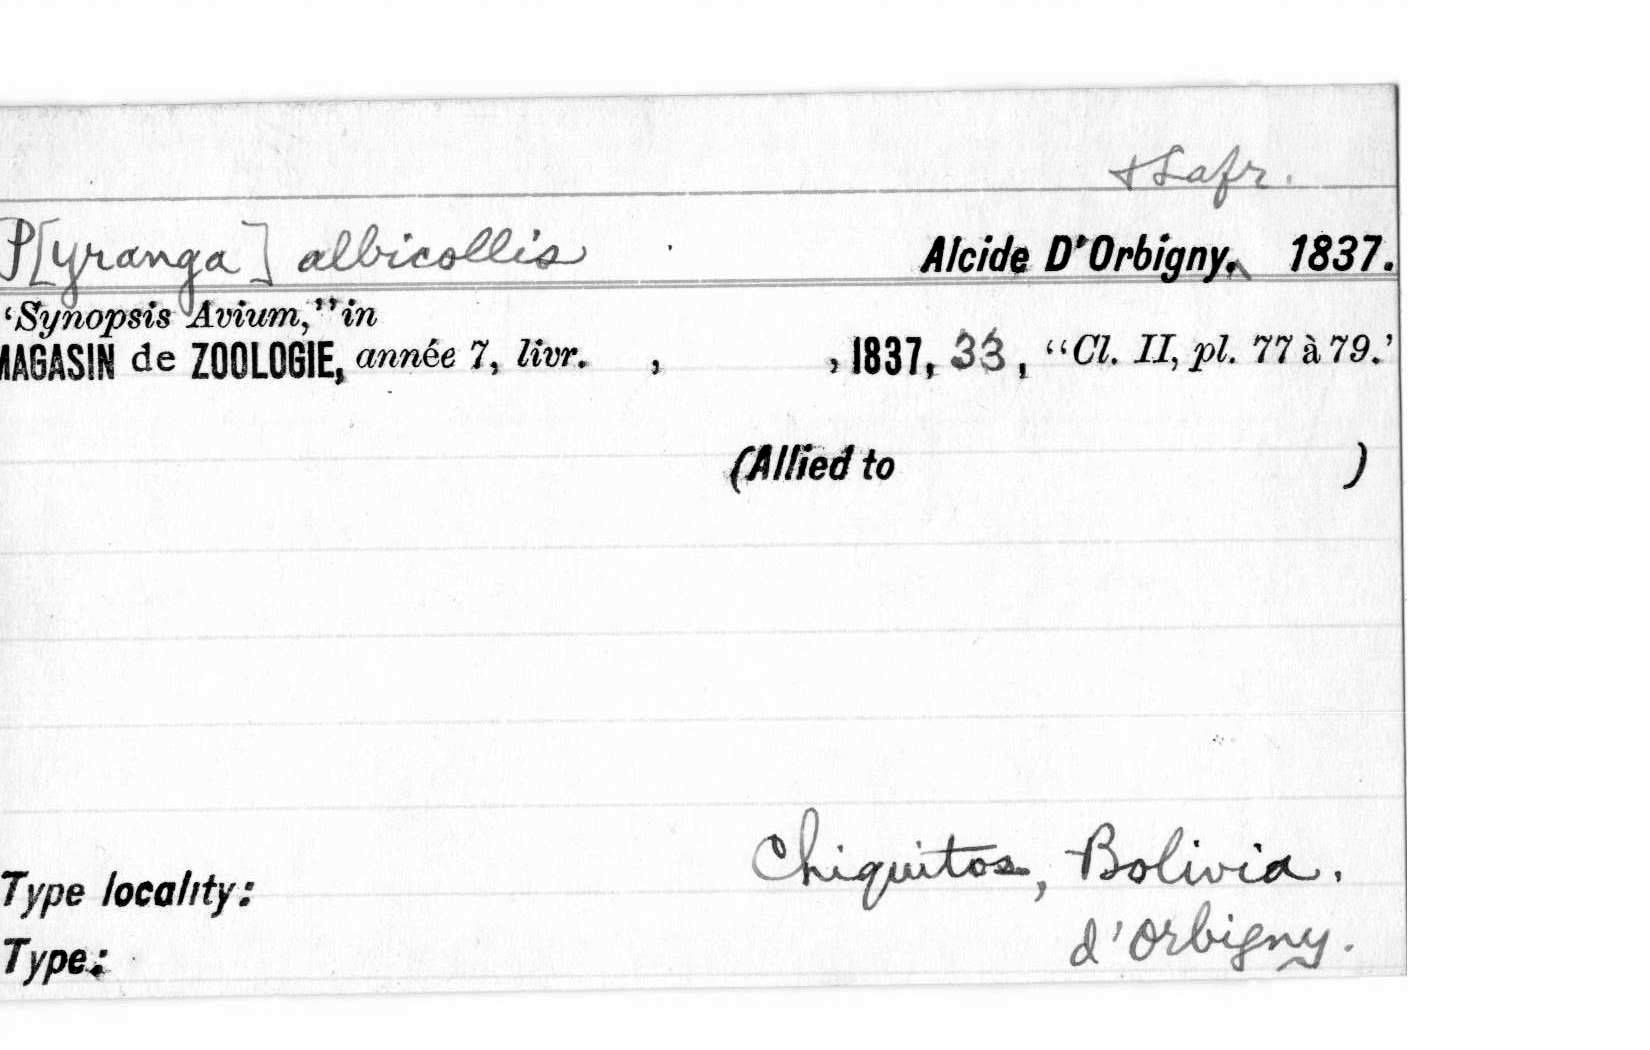 + Lafr.
P[yranga] albicollis Alcide D'Orbigny, 1837.
‘Synopsis Avium,” in
MAGASIN de ZOOLOGIE, année 7, livr. , , 1837, 33, “Cl. II, pl. 77 à 79.’
(Allied to )
Chiquitos, Bolivia.
Type locality:
d'Orbigny.
Type: